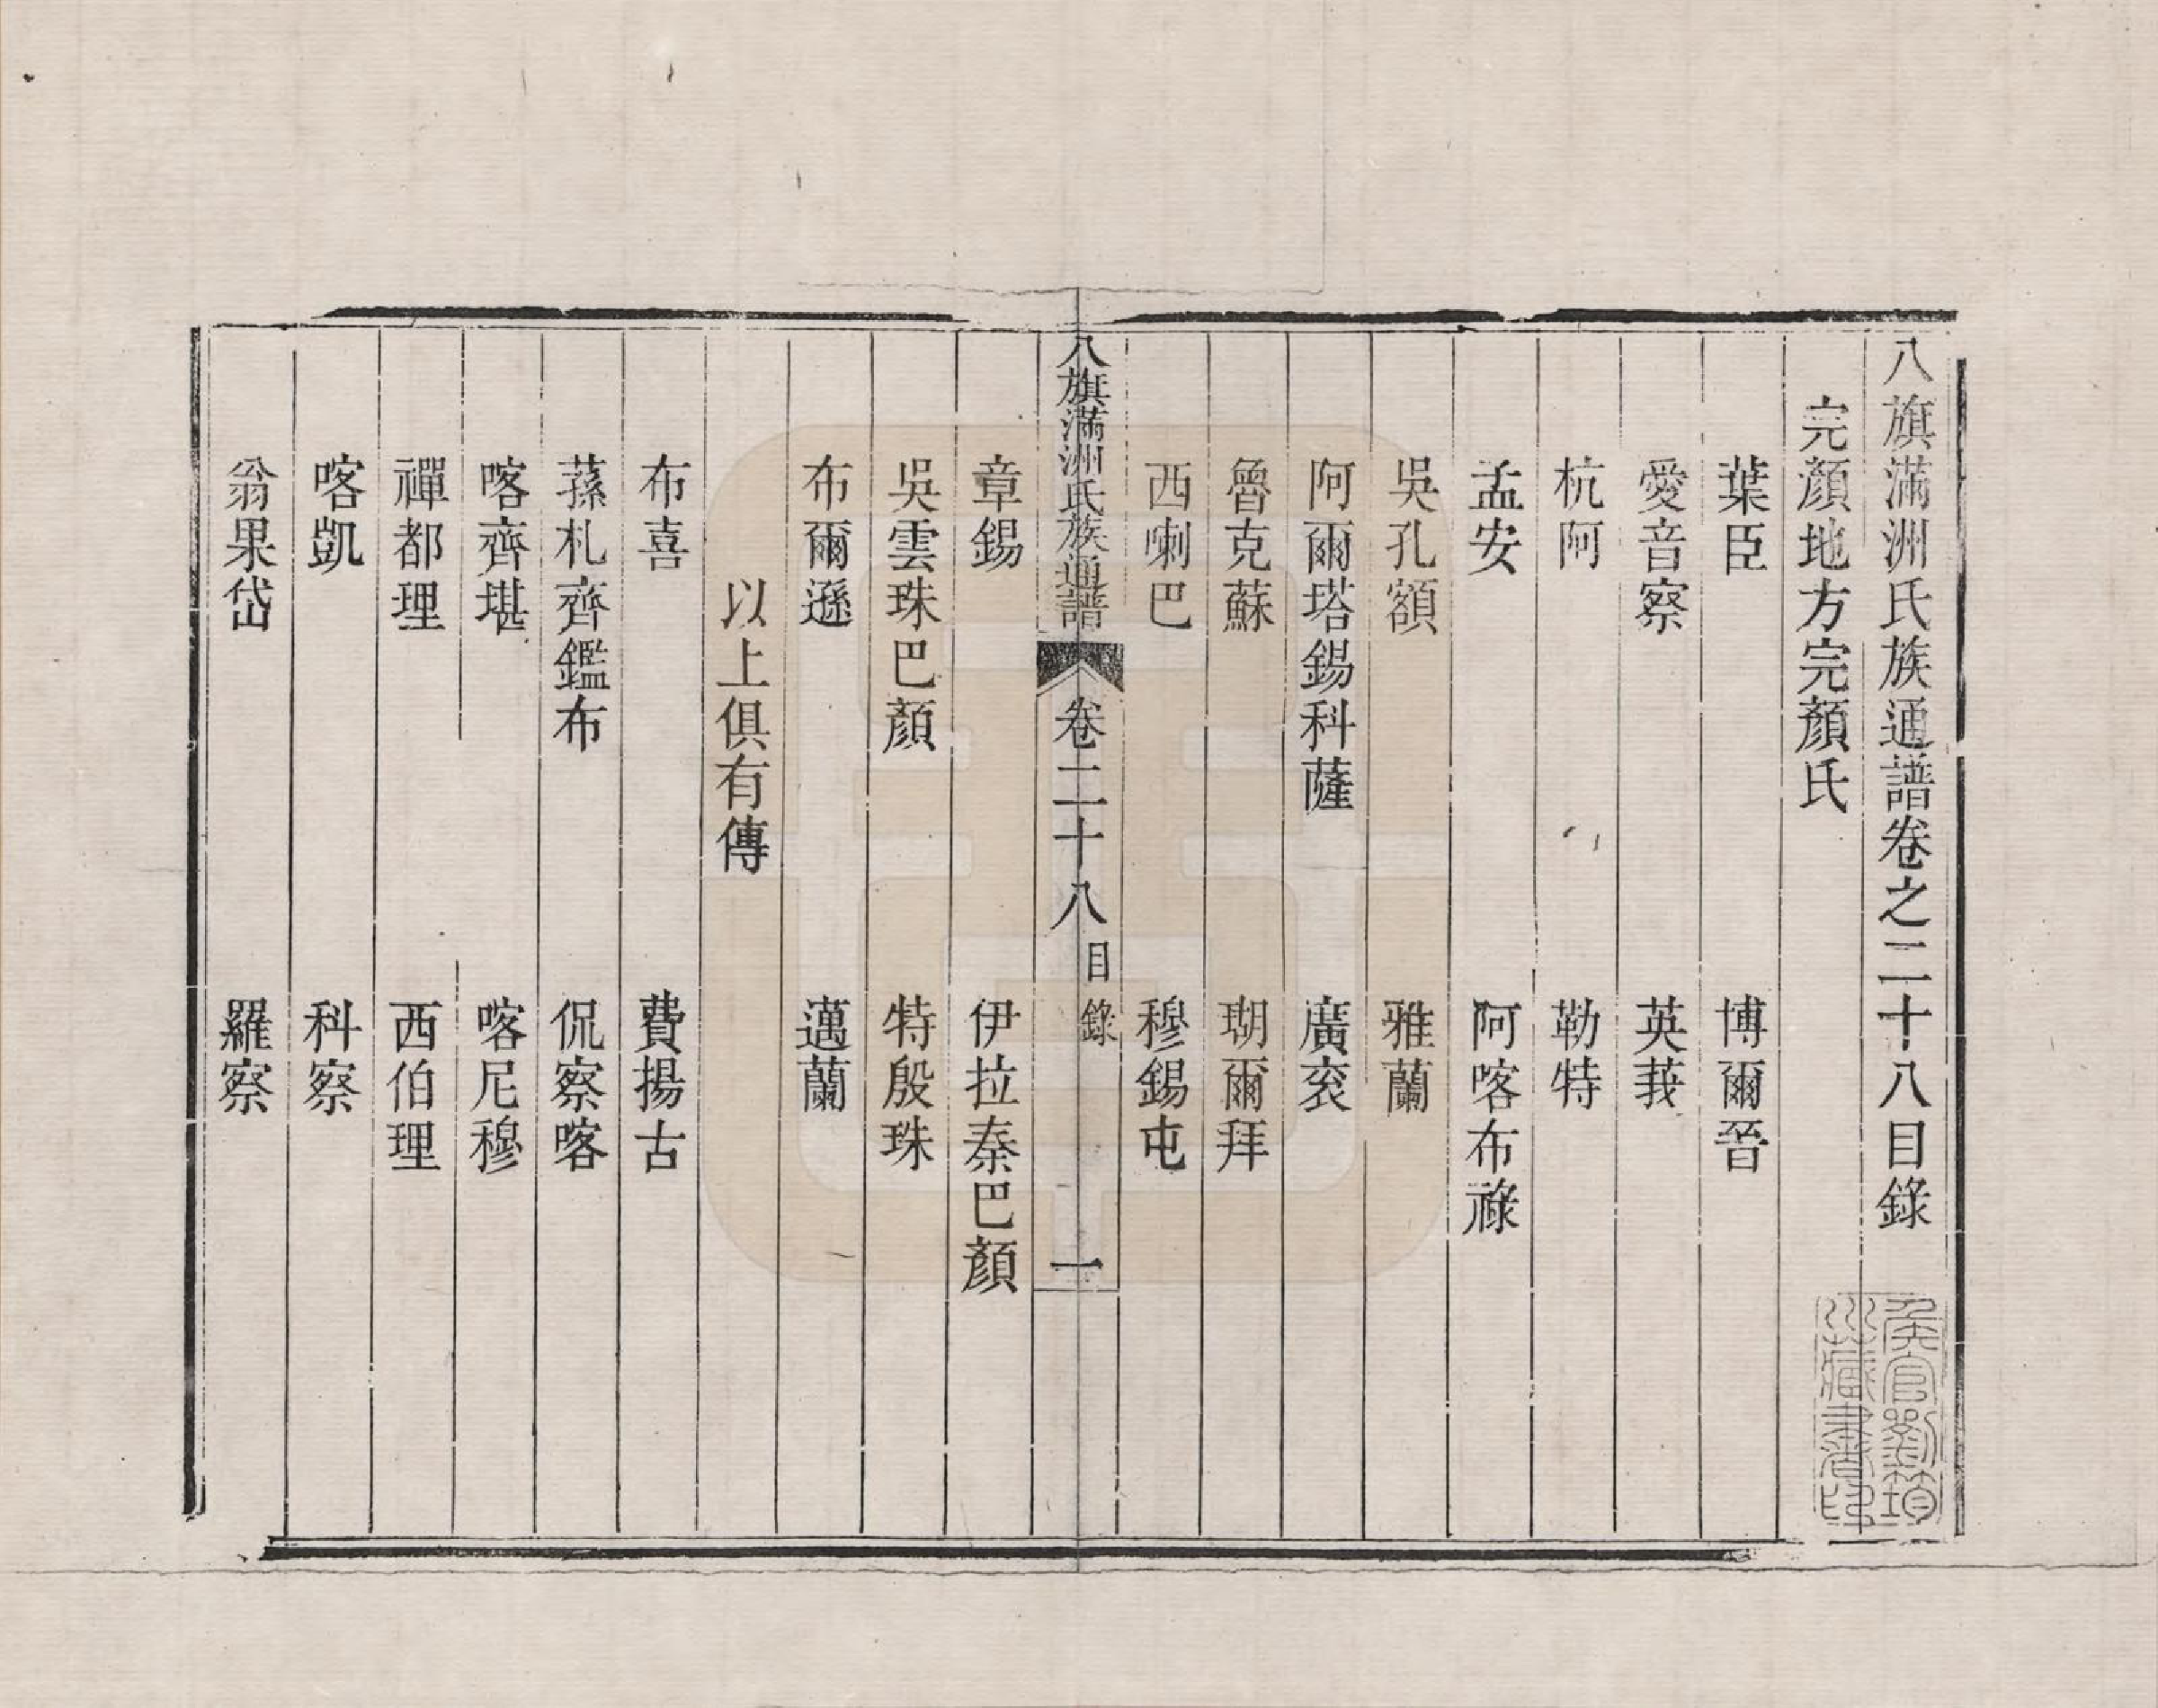 八旗滿洲氏族通譜卷之二十八目錄
完顏地方完顏氏
葉臣　博爾晉
愛音察　英莪
杭阿　勒特
孟安　阿喀布祿
吳孔額　雅蘭
阿爾塔錫科薩　廣袞
魯克蘇　瑚爾拜
西喇巴　穆錫屯
八旗滿洲氏族通譜　卷二十八　目錄　一
章錫　伊拉秦巴顏
吳雲珠巴顏　特殷珠
布爾遜　邁蘭
以上俱有傳
布喜　費揚古
蓀札齊鑑布　侃察喀
喀齊堪　喀尼穆
禪都理　西伯理
喀凱　科察
翁果岱　羅察
侯官劉筠
川藏書印